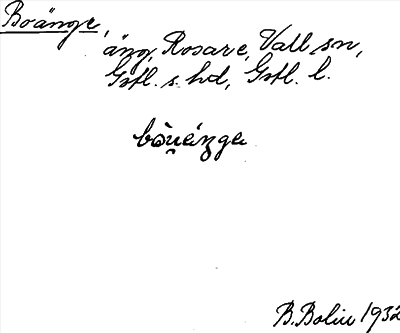 Boänge,
äng, Rosare, Vall sn,
Gstl. s. hd, Gstl. l.
B. Bolin 1932